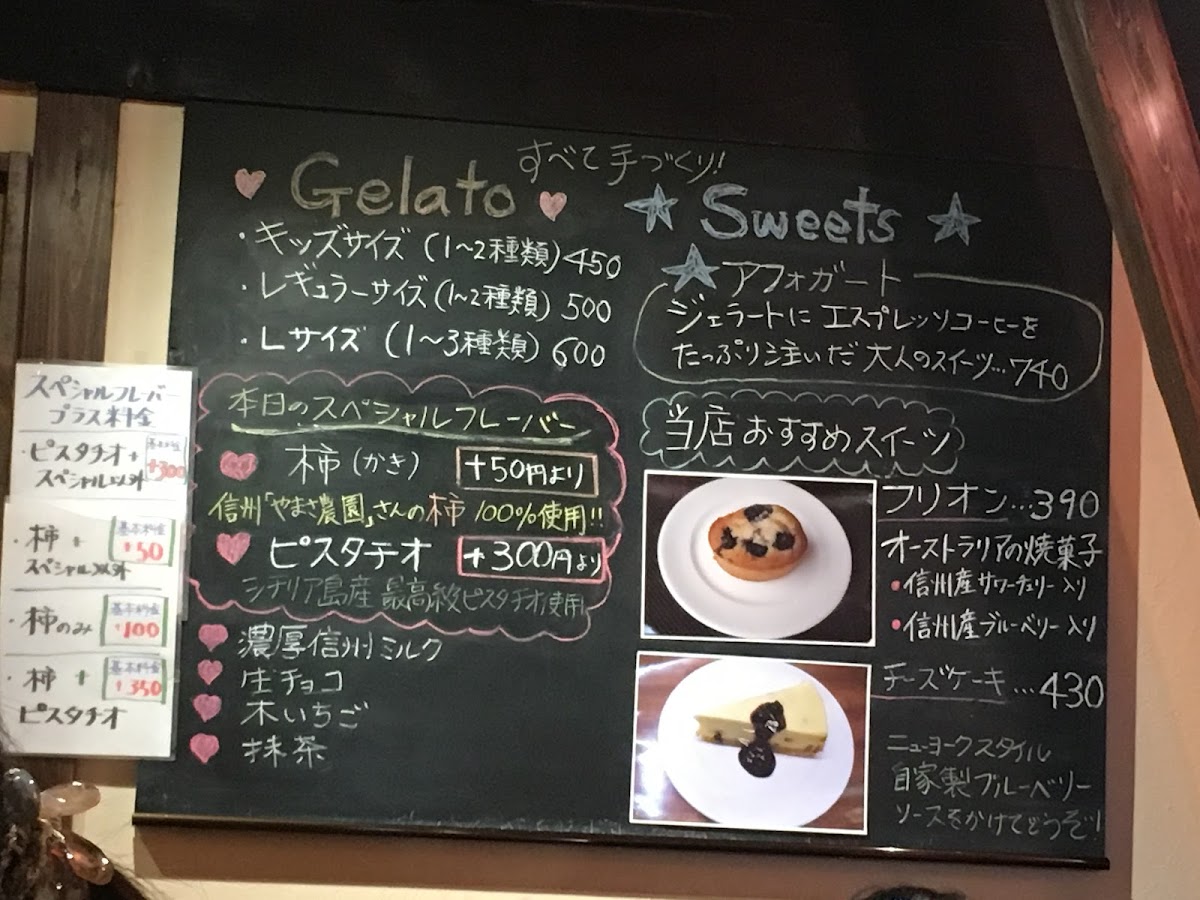 すべて手づくり!
Gelato
・キッズサイズ (1〜2種類) 450
・レギュラーサイズ (1〜2種類) 500
・Lサイズ (1〜3種類) 600
本日のスペシャルフレーバー
柿 (かき) +50円より
信州「やまさ農園」さんの柿 100%使用!!
ピスタチオ +300円より
シチリア島産 最高級ピスタチオ使用
濃厚信州ミルク
生チョコ
木いちご
抹茶
Sweets
アフォガート
ジェラートに エスプレッソコーヒーを
たっぷり注いだ 大人のスイーツ…740
当店おすすめスイーツ
フリオン…390
オーストラリアの焼菓子
・信州産サワーチェリー入り
・信州産ブルーベリー入り
チーズケーキ…430
ニューヨークスタイル
自家製ブルーベリー
ソースをかけてどうぞ!
スペシャルフレーバー
プラス料金
・ピスタチオ + 基本料金
スペシャル以外 +300
・柿 + 基本料金
スペシャル以外 +50
・柿のみ 基本料金
+100
・柿 + 基本料金
ピスタチオ +350